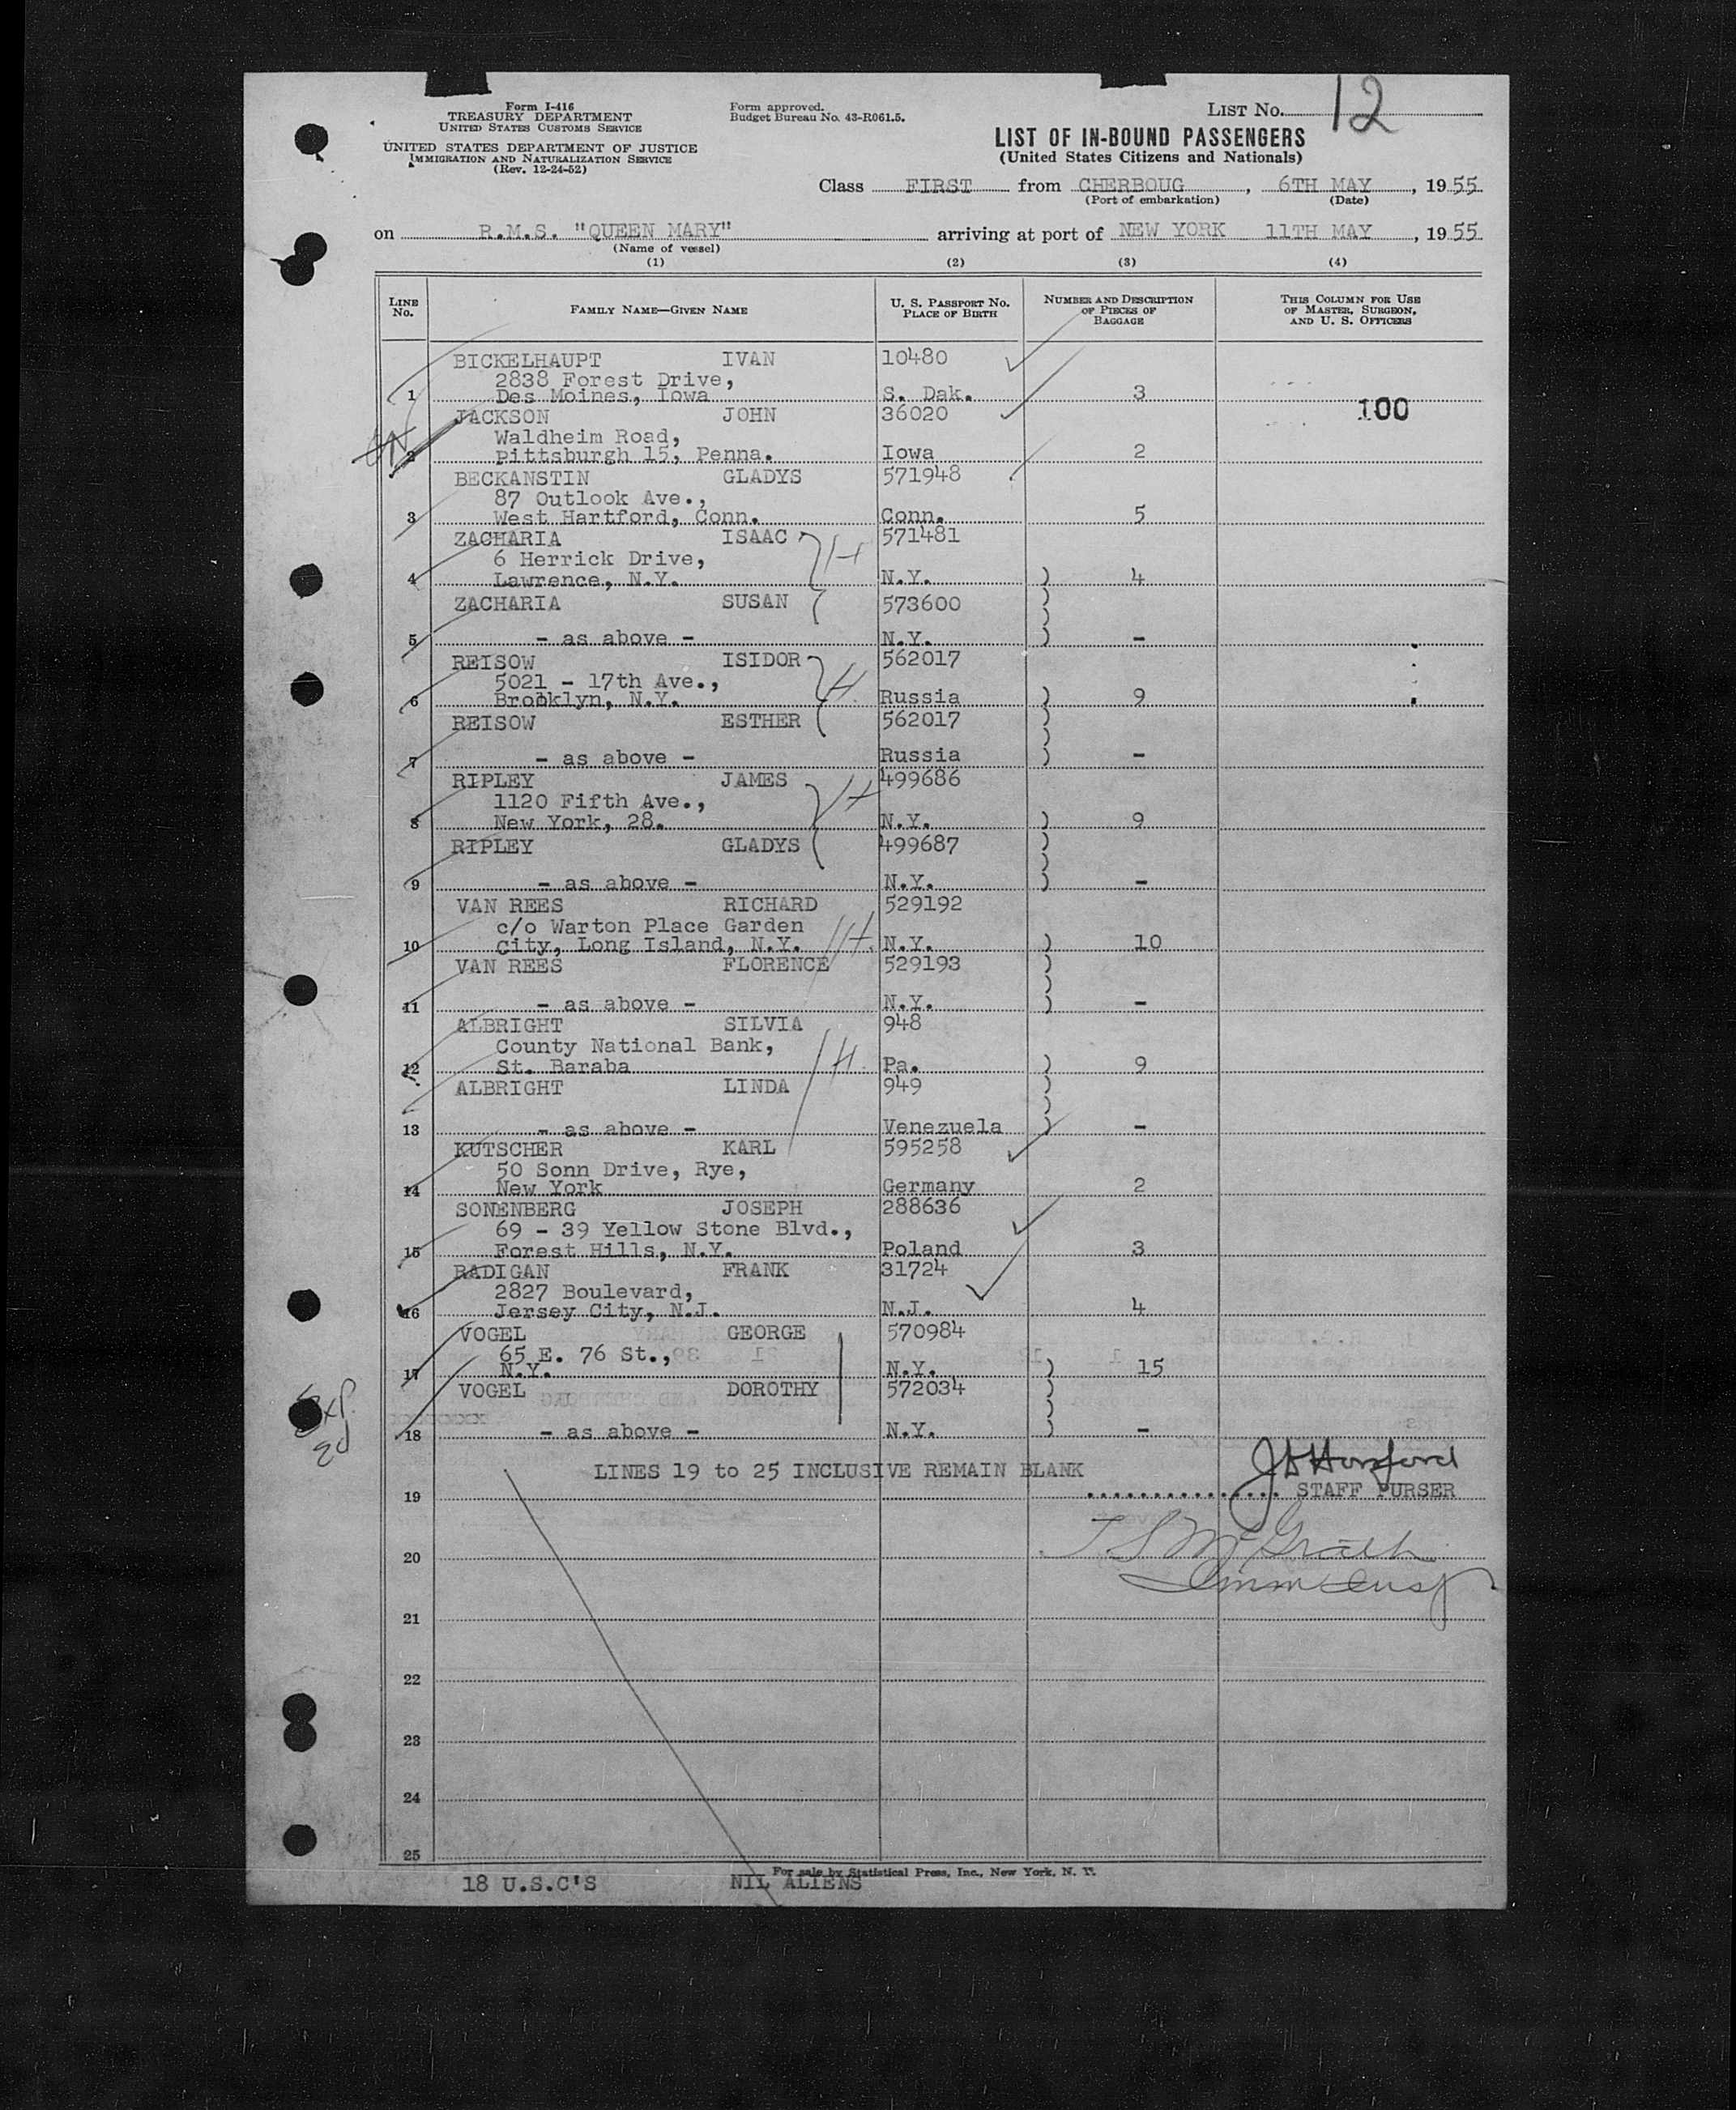 Form I-416
TREASURY DEPARTMENT
UNITED STATES CUSTOMS SERVICE
UNITED STATES DEPARTMENT OF JUSTICE
IMMIGRATION AND NATURALIZATION SERVICE
(Rev. 12-24-52)
Form approved.
Budget Bureau No. 43-R061.5.
LIST No. 12
LIST OF IN-BOUND PASSENGERS
(United States Citizens and Nationals)
Class FIRST from CHERBOUG, 6TH MAY, 1955
(Port of embarkation) (Date)
on R.M.S. "QUEEN MARY" arriving at port of NEW YORK 11TH MAY, 1955
(Name of vessel)
(1) (2) (3) (4)
LINE No. FAMILY NAME—GIVEN NAME U. S. PASSPORT No. PLACE OF BIRTH NUMBER AND DESCRIPTION OF PIECES OF BAGGAGE THIS COLUMN FOR USE OF MASTER, SURGEON, AND U. S. OFFICERS
BICKELHAUPT IVAN 10480
2838 Forest Drive,
1 Des Moines, Iowa S. Dak. 3
JACKSON JOHN 36020 100
Waldheim Road,
2 Pittsburgh 15, Penna. Iowa 2
BECKANSTIN GLADYS 571948
87 Outlook Ave.,
3 West Hartford, Conn. Conn. 5
ZACHARIA ISAAC 571481
6 Herrick Drive, H
4 Lawrence, N.Y. N.Y. ) 4
ZACHARIA SUSAN 573600 )
5 - as above - N.Y. ) -
REISOW ISIDOR 562017
5021 - 17th Ave., H
6 Brooklyn, N.Y. Russia ) 9
REISOW ESTHER 562017 )
7 - as above - Russia ) -
RIPLEY JAMES 499686
1120 Fifth Ave., H
8 New York, 28. N.Y. ) 9
RIPLEY GLADYS 499687 )
9 - as above - N.Y. ) -
VAN REES RICHARD 529192
c/o Warton Place Garden
10 City, Long Island, N.Y. H. N.Y. ) 10
VAN REES FLORENCE 529193 )
11 - as above - N.Y. ) -
ALBRIGHT SILVIA 948
County National Bank,
12 St. Baraba H. Pa. ) 9
ALBRIGHT LINDA 949 )
13 - as above - Venezuela ) -
KUTSCHER KARL 595258
50 Sonn Drive, Rye,
14 New York Germany 2
SONENBERG JOSEPH 288636
69 - 39 Yellow Stone Blvd.,
15 Forest Hills, N.Y. Poland 3
RADIGAN FRANK 31724
2827 Boulevard,
16 Jersey City, N.J. N.J. 4
VOGEL GEORGE 570984
65 E. 76 St.,
17 N.Y. N.Y. ) 15
VOGEL DOROTHY 572034 )
18 - as above - N.Y. ) -
LINES 19 to 25 INCLUSIVE REMAIN BLANK
19 ............... STAFF PURSER
T S McGrath
20
Imm Insp
21
22
23
24
25
For sale by Statistical Press, Inc., New York, N. Y.
18 U.S.C'S NIL ALIENS